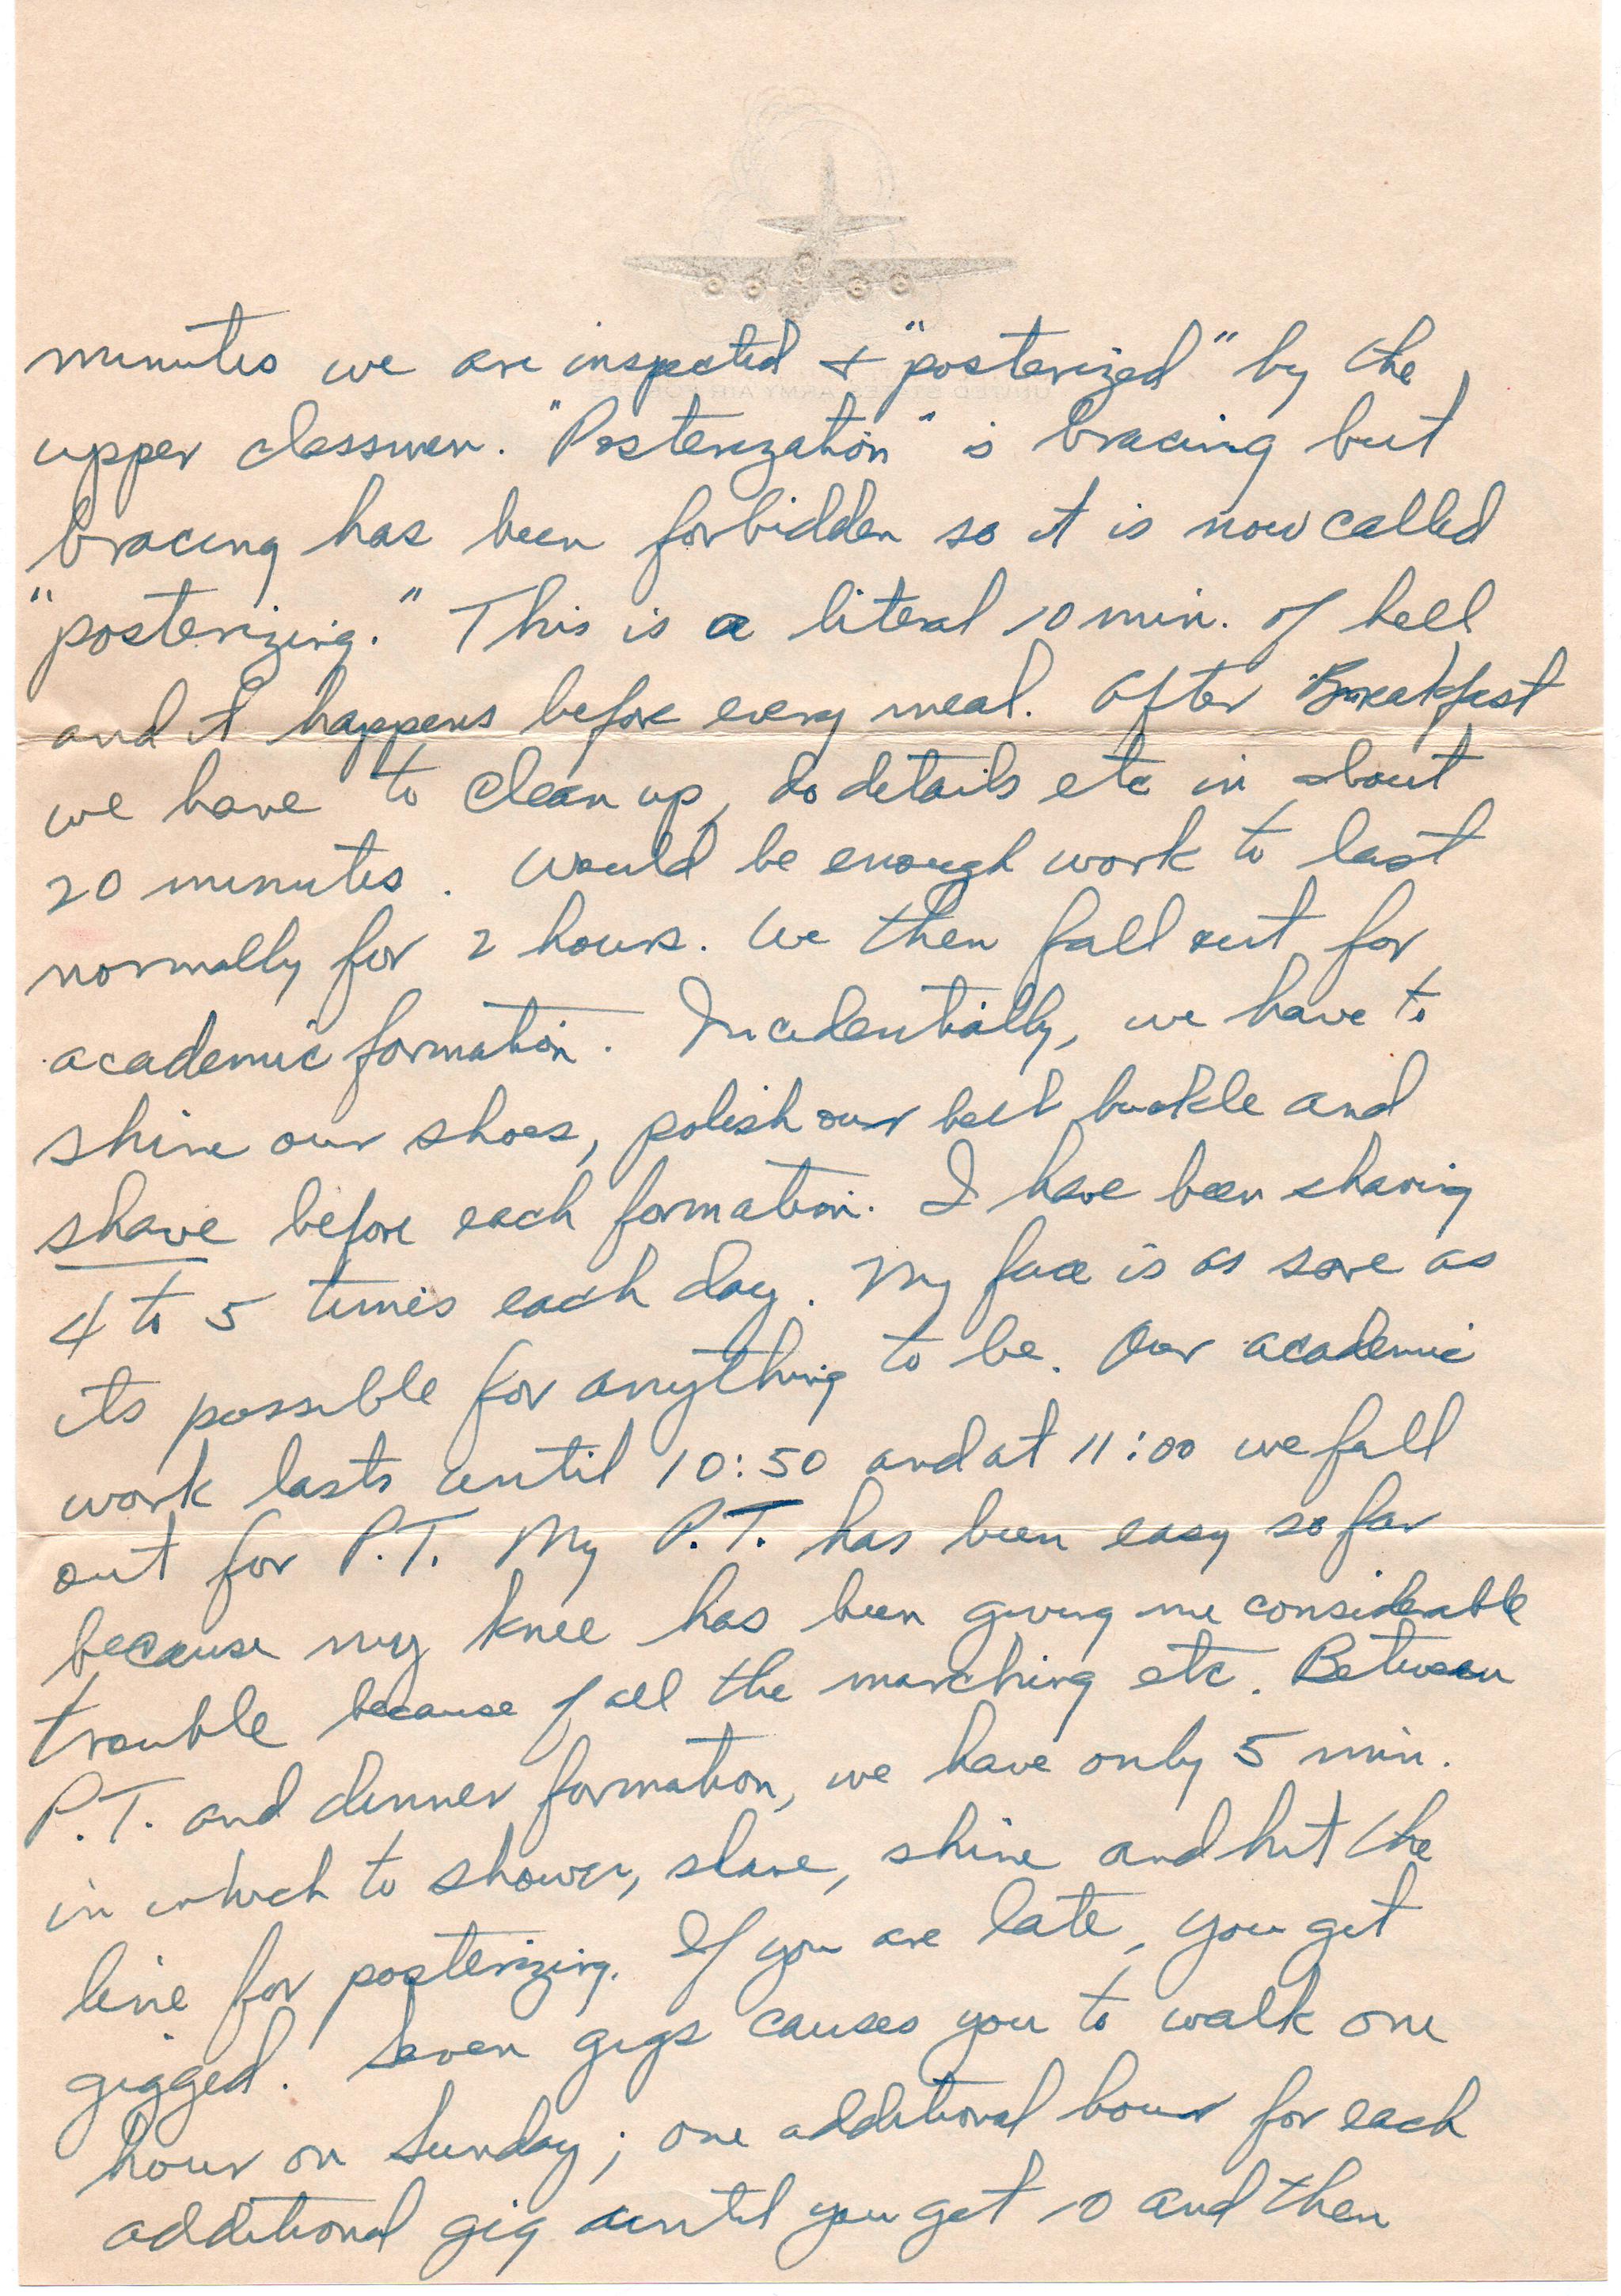 minutes we are inspected + "posterized" by the
upper classmen. "Posterization" is bracing but
bracing has been forbidden so it is now called
"posterizing." This is a literal 10 min. of hell
and it happens before every meal. After Breakfast
we have to clean up, do details etc in about
20 minutes. Would be enough work to last
normally for 2 hours. We then fall out for
academic formation. Incidentially, we have to
shine our shoes, polish our belt buckle and
shave before each formation. I have been shaving
4 to 5 times each day. My face is as sore as
its possible for anything to be. Our academic
work lasts until 10:50 and at 11:00 we fall
out for P.T. My P.T. has been easy so far
because my knee has been giving me considerable
trouble because of all the marching etc. Between
P.T. and dinner formation, we have only 5 min.
in which to shower, shave, shine and hit the
line for posterizing. If you are late, you get
gigged. Seven gigs causes you to walk one
hour on Sunday; one additional hour for each
additional gig until you get 10 and then